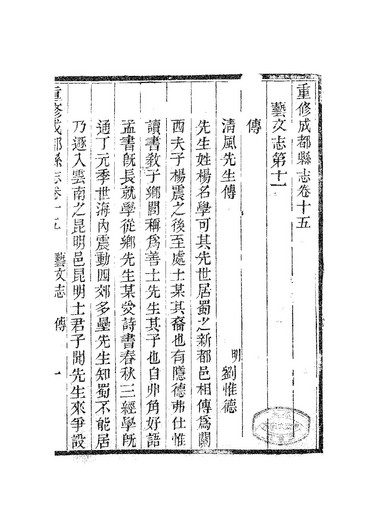 重修成都縣志卷十五
藝文志第十一
傳
清風先生傳
明 劉惟德
先生姓楊名學可其先世居蜀之新都邑相傳爲關
西夫子楊震之後至處士某其裔也有隱德弗仕惟
讀書敎子鄉閭稱爲善士先生其子也自丱角好語
孟書旣長就學從鄉先生某受詩書春秋三經學旣
通丁元季世海內震動四郊多壘先生知蜀不能居
乃遯入雲南之昆明邑昆明士君子聞先生來爭設
重修成都縣志卷十五 藝文志 傳 一